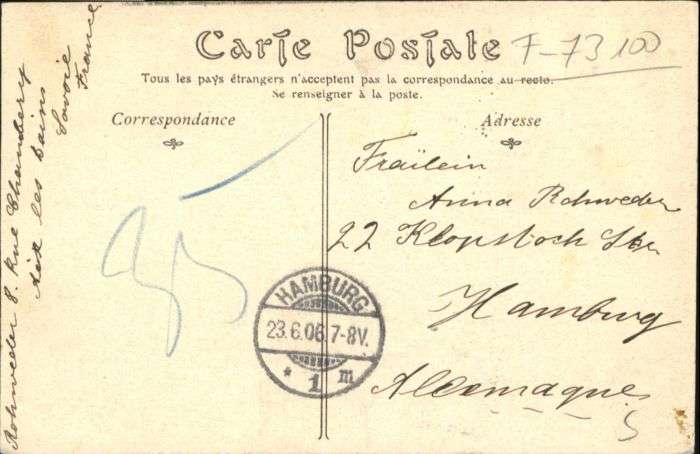 Carte Postale
F-73100
Tous les pays étrangers n'acceptent pas la correspondance au recto.
Se renseigner à la poste.
Correspondance
Adresse
Rohweder 8. Rue Chambery
Aix les Bains
Savoie
France
Fräulein
Anna Rohweder
22 Klopstock Str
Hamburg
Allemagne
HAMBURG
23.6.06.7-8V.
* 1 m